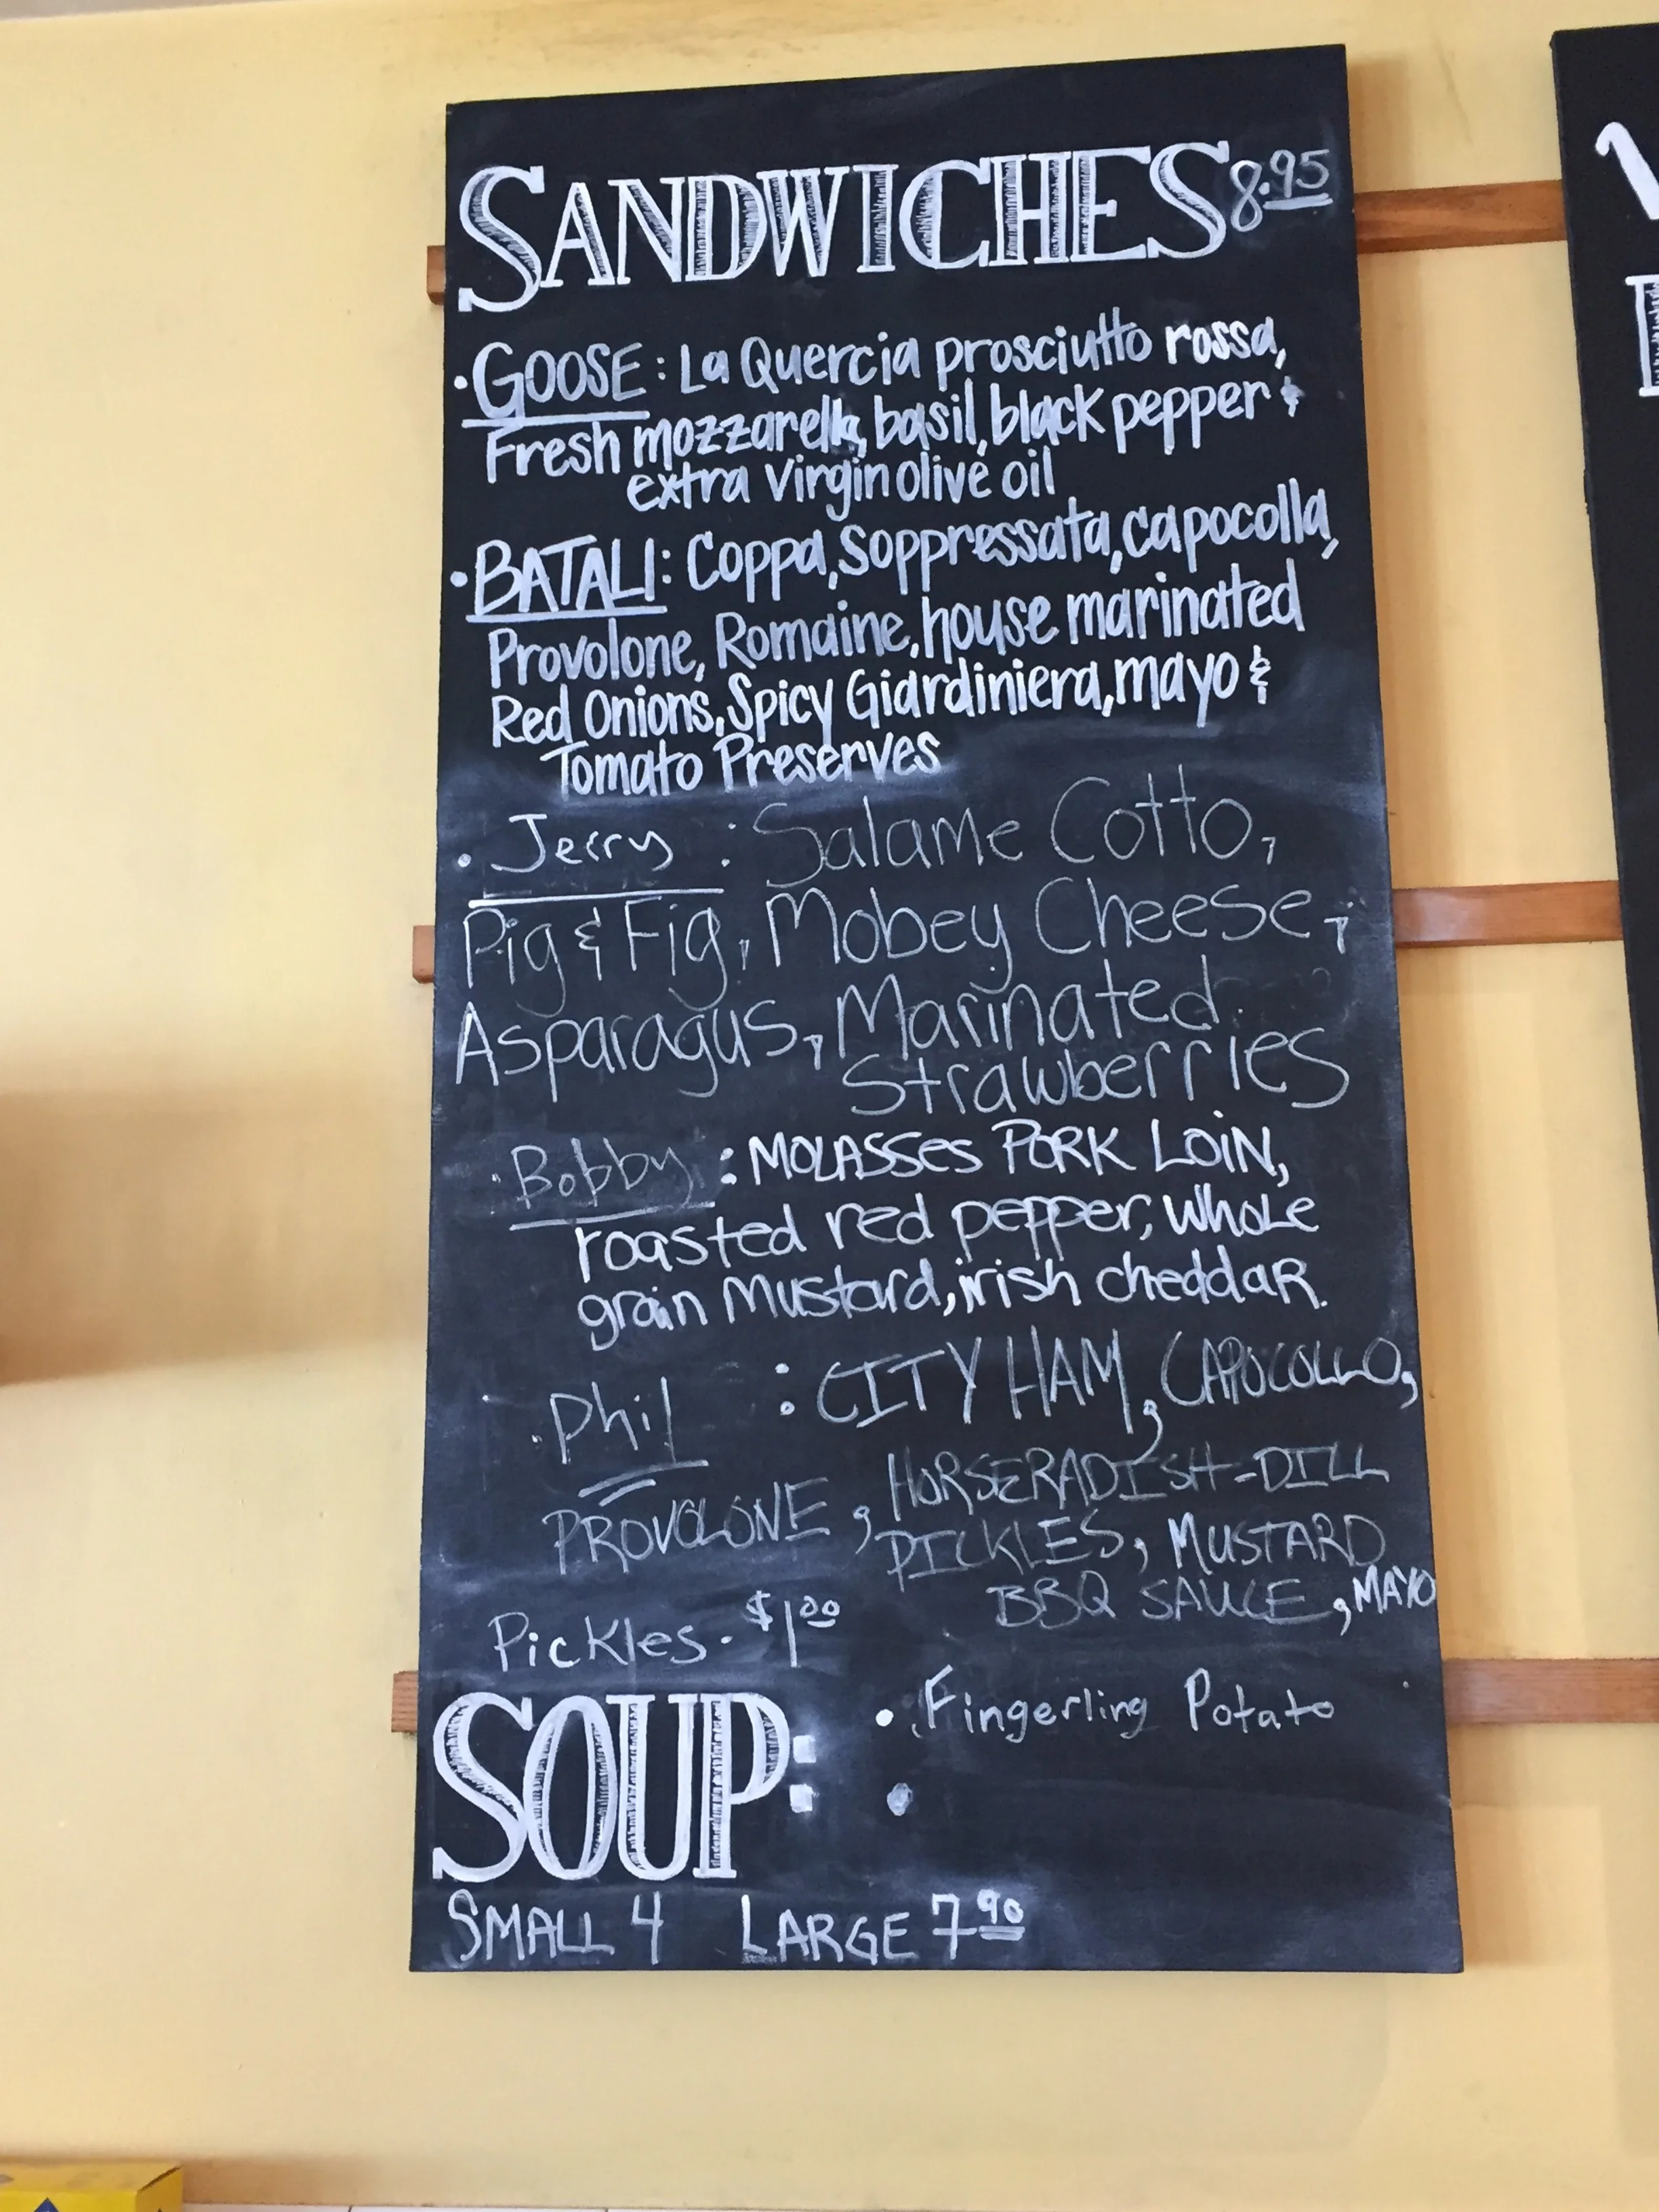 SANDWICHES 8.95
· GOOSE: La Quercia prosciutto rossa,
Fresh mozzarella, basil, black pepper &
extra virgin olive oil
· BATALI: Coppa, Soppressata, capocolla,
Provolone, Romaine, house marinated
Red Onions, Spicy Giardiniera, mayo &
Tomato Preserves
· Jerry : Salame Cotto,
Pig & Fig, Mobey Cheese,
Asparagus, Marinated
Strawberries
· Bobby : MOLASSES PORK LOIN,
roasted red pepper, whole
grain Mustard, irish cheddar.
· Phil : CITY HAM, CAPOCOLLO,
PROVOLONE, HORSERADISH-DILL
PICKLES, MUSTARD
BBQ SAUCE, MAYO
Pickles. $1.00
SOUP: • Fingerling Potato
•
SMALL 4 LARGE 7.90